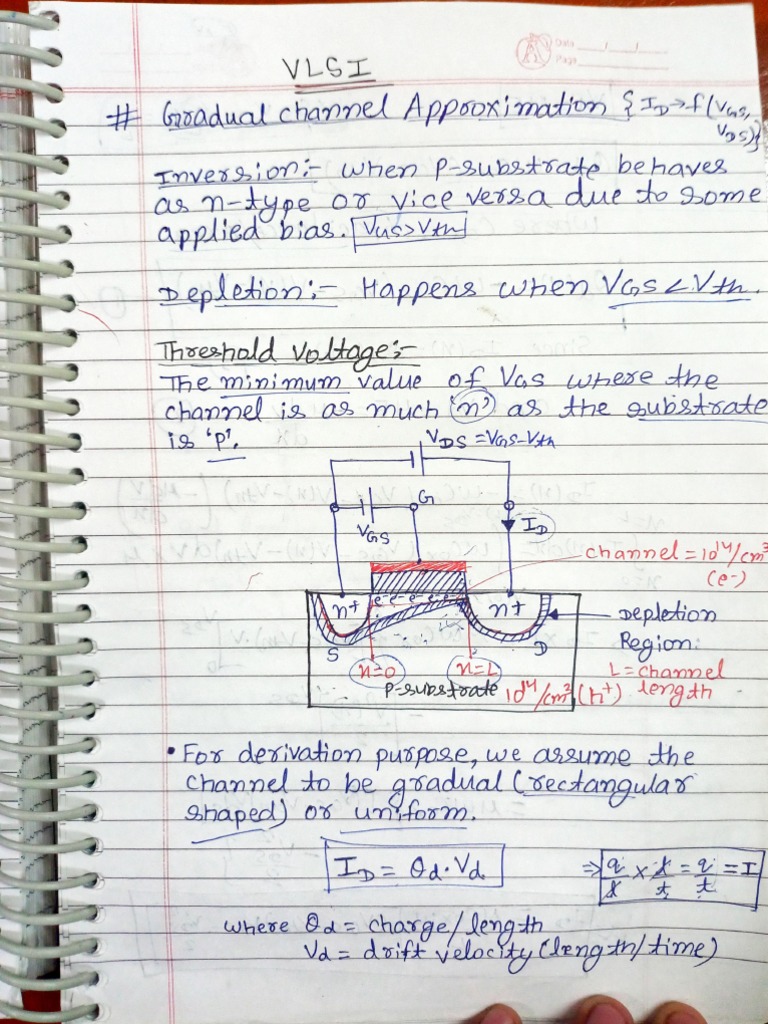 Date
Page
VLSI
# Gradual channel Approximation {ID→f(VGS,
VDS)}
Inversion:- when P-substrate behaves
as n-type or vice versa due to some
applied bias. VGS>Vth
Depletion:- Happens when VGS<Vth.
Threshold voltage:-
The minimum value of VGS where the
channel is as much 'n' as the substrate
is 'p'.
VDS = VGS-Vth
G
VGS
ID
channel = 10^14/cm^3
(e-)
n+ e- e- e- e- e- n+
Depletion
Region:
S D
x=0 x=L
L=channel
length
P-substrate 10^14/cm^3 (h+)
• For derivation purpose, we assume the
channel to be gradual (rectangular
shaped) or uniform.
ID = Qd.Vd
⇒ q/l × l/t = q/t = I
where Qd = charge/length
Vd = drift velocity (length/time)